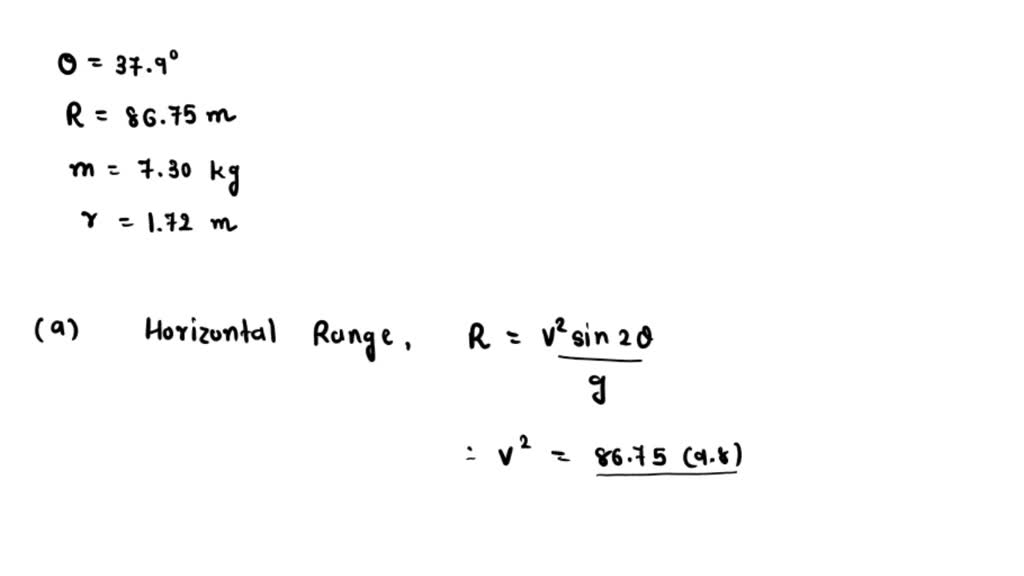 θ = 37.9°
R = 86.75 m
m = 7.30 kg
r = 1.72 m
(a) Horizontal Range, R = v² sin 2θ / g
∴ v² = 86.75 (9.8)